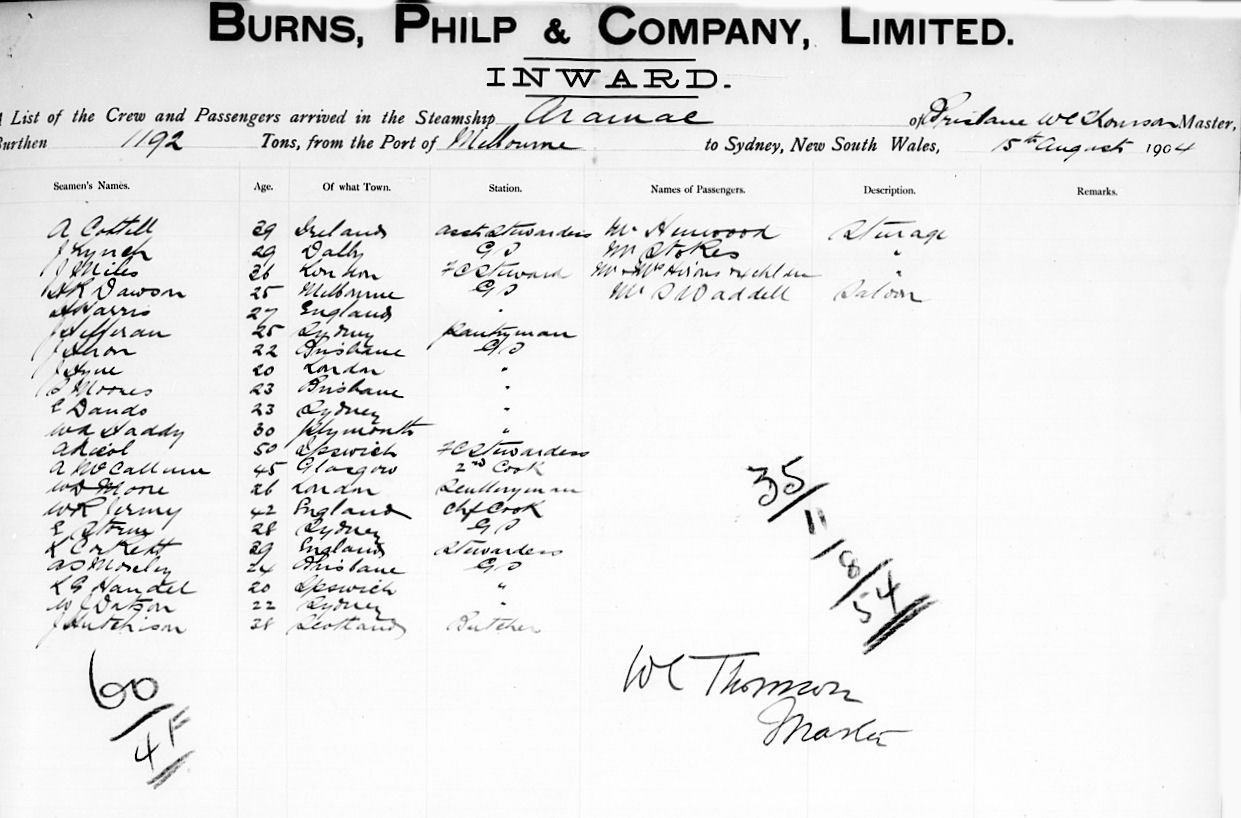 BURNS, PHILP & COMPANY, LIMITED.
INWARD.
List of the Crew and Passengers arrived in the Steamship Aramac of Brisbane W C Thomson Master,
Burthen 1192 Tons, from the Port of Melbourne to Sydney, New South Wales, 15th August 1904
Seamen's Names. Age. Of what Town. Station. Names of Passengers. Description. Remarks.
A Cottill 29 Ireland Asst Stewardess Mr Henwood Steerage
J Lynch 29 Dalby G S Mr Stokes "
J Miles 26 London F C Steward Mr & Mrs "
Dawson 25 Melbourne G S Mr S Waddell Saloon
Harris 27 England "
J Heffernan 25 Sydney Pantryman
J Heron 22 Brisbane G S
J Hyne 20 London "
Moores 23 Brisbane "
E Dando 23 Sydney "
Haddy 30 Plymouth "
A Nicol 50 Ipswich F C Stewardess
A McCallum 45 Glasgow 2nd Cook
Moore 26 London Scullery man
W R Jermy 42 England Chf Cook
E Storm 28 Sydney G S
K Corkett 29 England Stewardess
A S Moseley 24 Brisbane G S
L G Handel 20 Ipswich "
W J Datson 22 Sydney "
J Hutchison 28 Scotland Butcher
35/11/8/54
60/4F
W C Thomson
Master